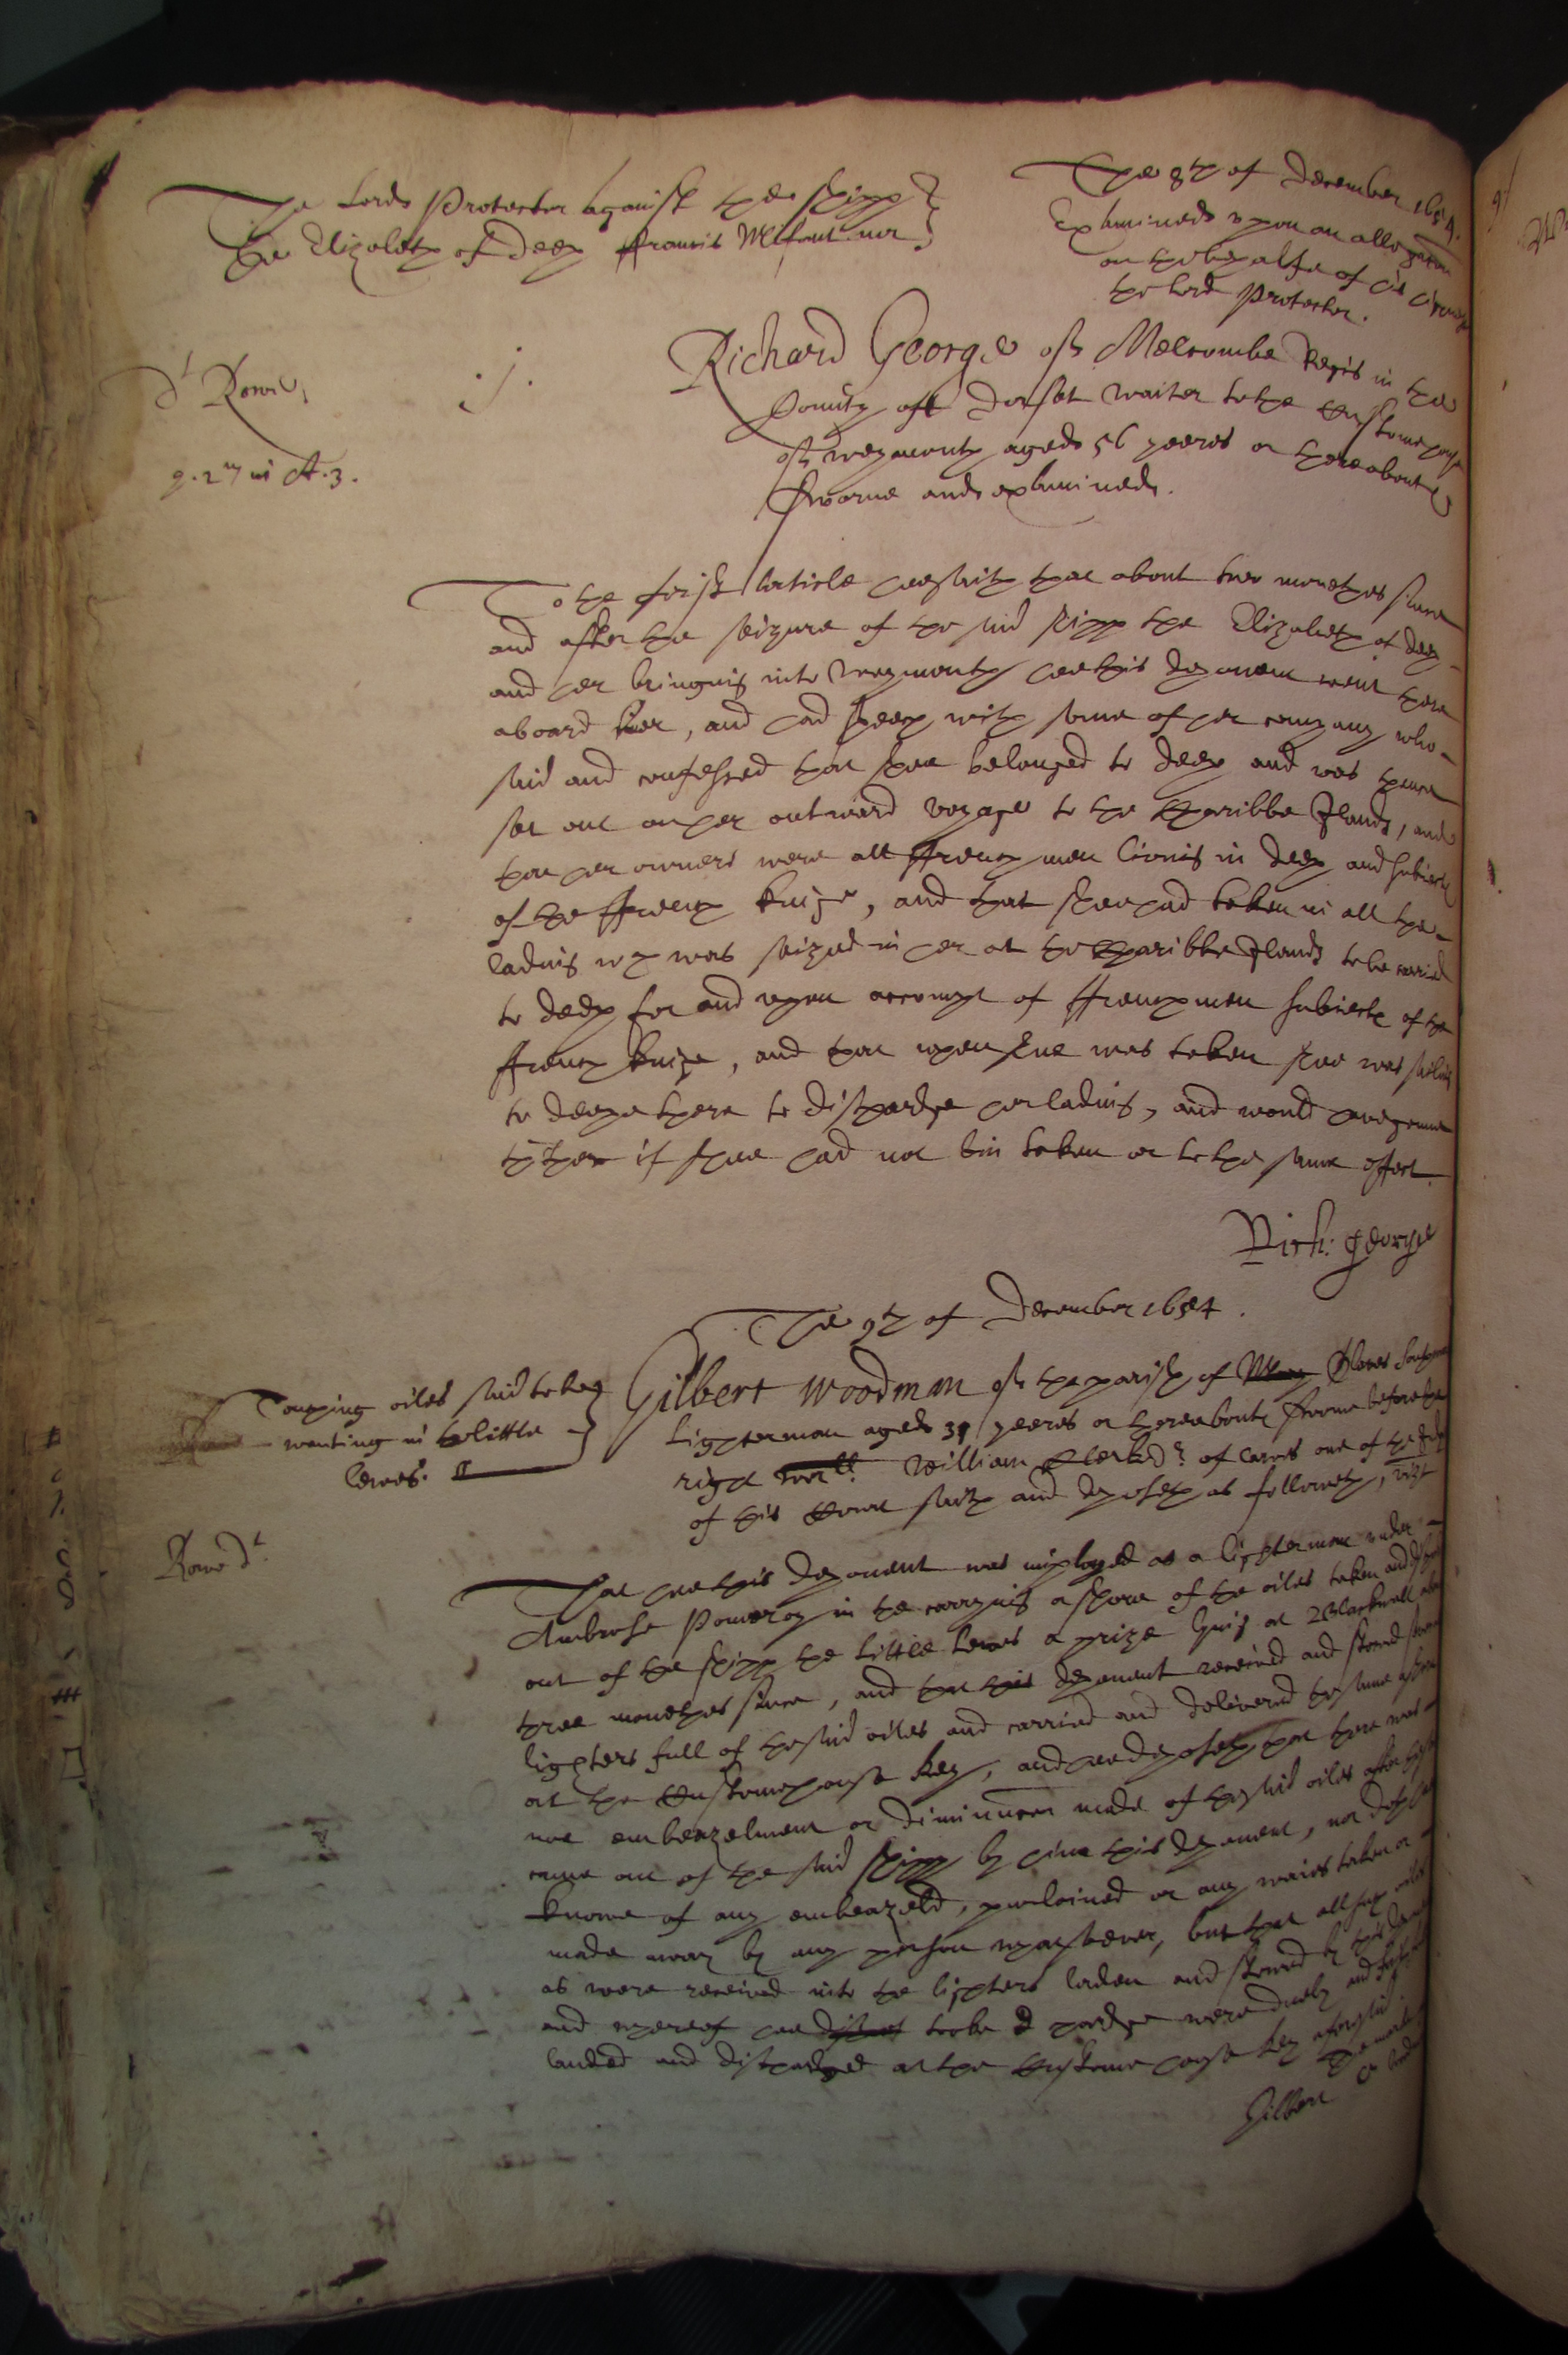 The Lord Protector against the shipp
the Elizabeth of Deep ffrancis
The 8th of December 1654.
Examined upon an allegation
on the behalfe of his
the Lord Protector.
dt Rowe,
.j.
Richard George of Melcombe Regis in the
County of Dorset waiter to the Customehouse
of Weymouth aged 56 yeeres or thereabouts
sworne and examined.
To the first Article hee saith that about two monethes since
and after the seizure of the said shipp the Elizabeth of deep
and her bringing into Weymouth hee this deponent went there
aboard her, and had speech with some of her company who
said and confessed that shee belonged to deep and was thence
set out on her outward voyage to the Charibbe Islands, and
that her owners were all ffrench men living in deep and subiects
of the ffrench king, and that shee had taken in all the
lading wch was seized in her at the Charibbe Islands to be carried
to deep for and upon accompt of ffrenchmen subiects of the
ffrench king, and that when shee was taken shee was sailing
to deepe there to discharge her lading, and would have gone
thither if shee had not bin taken or to the same effect.
Rich: George
The 9th of December 1654.
Touching oiles said to bee
wanting in the little
lewes.
Gilbert Woodman of the parish of Olaves
Lighterman aged 39 yeeres or thereabouts sworne before the
right William Clerke dr of lawes one of the
of this Court saith and deposeth as followeth, vizt
Rowe dt.
That hee this deponent was imployed as a lighterman under
Ambrose Pomeroy in the carrying a shore of the oiles taken and
out of the shipp the little Lewes a prize lying at Blackwall
three monethes since, and that this deponent received and stowed
lighters full of the said oiles and carried and delivered the same ashore
at the Customehouse key, and hee deposeth that there was
noe embeazelment or diminucon made of the said oiles after they
came out of the said shipp by him this deponent, nor doth hee
knowe of any embeazeld, purloined or any waies taken or
made away by any person whatsoever, but that all such oiles
as were received into the lighters laden and stowed by this
and whereof hee tooke charge were duely and
landed and discharged at the Customehouse key aforesaid.
Gilbert